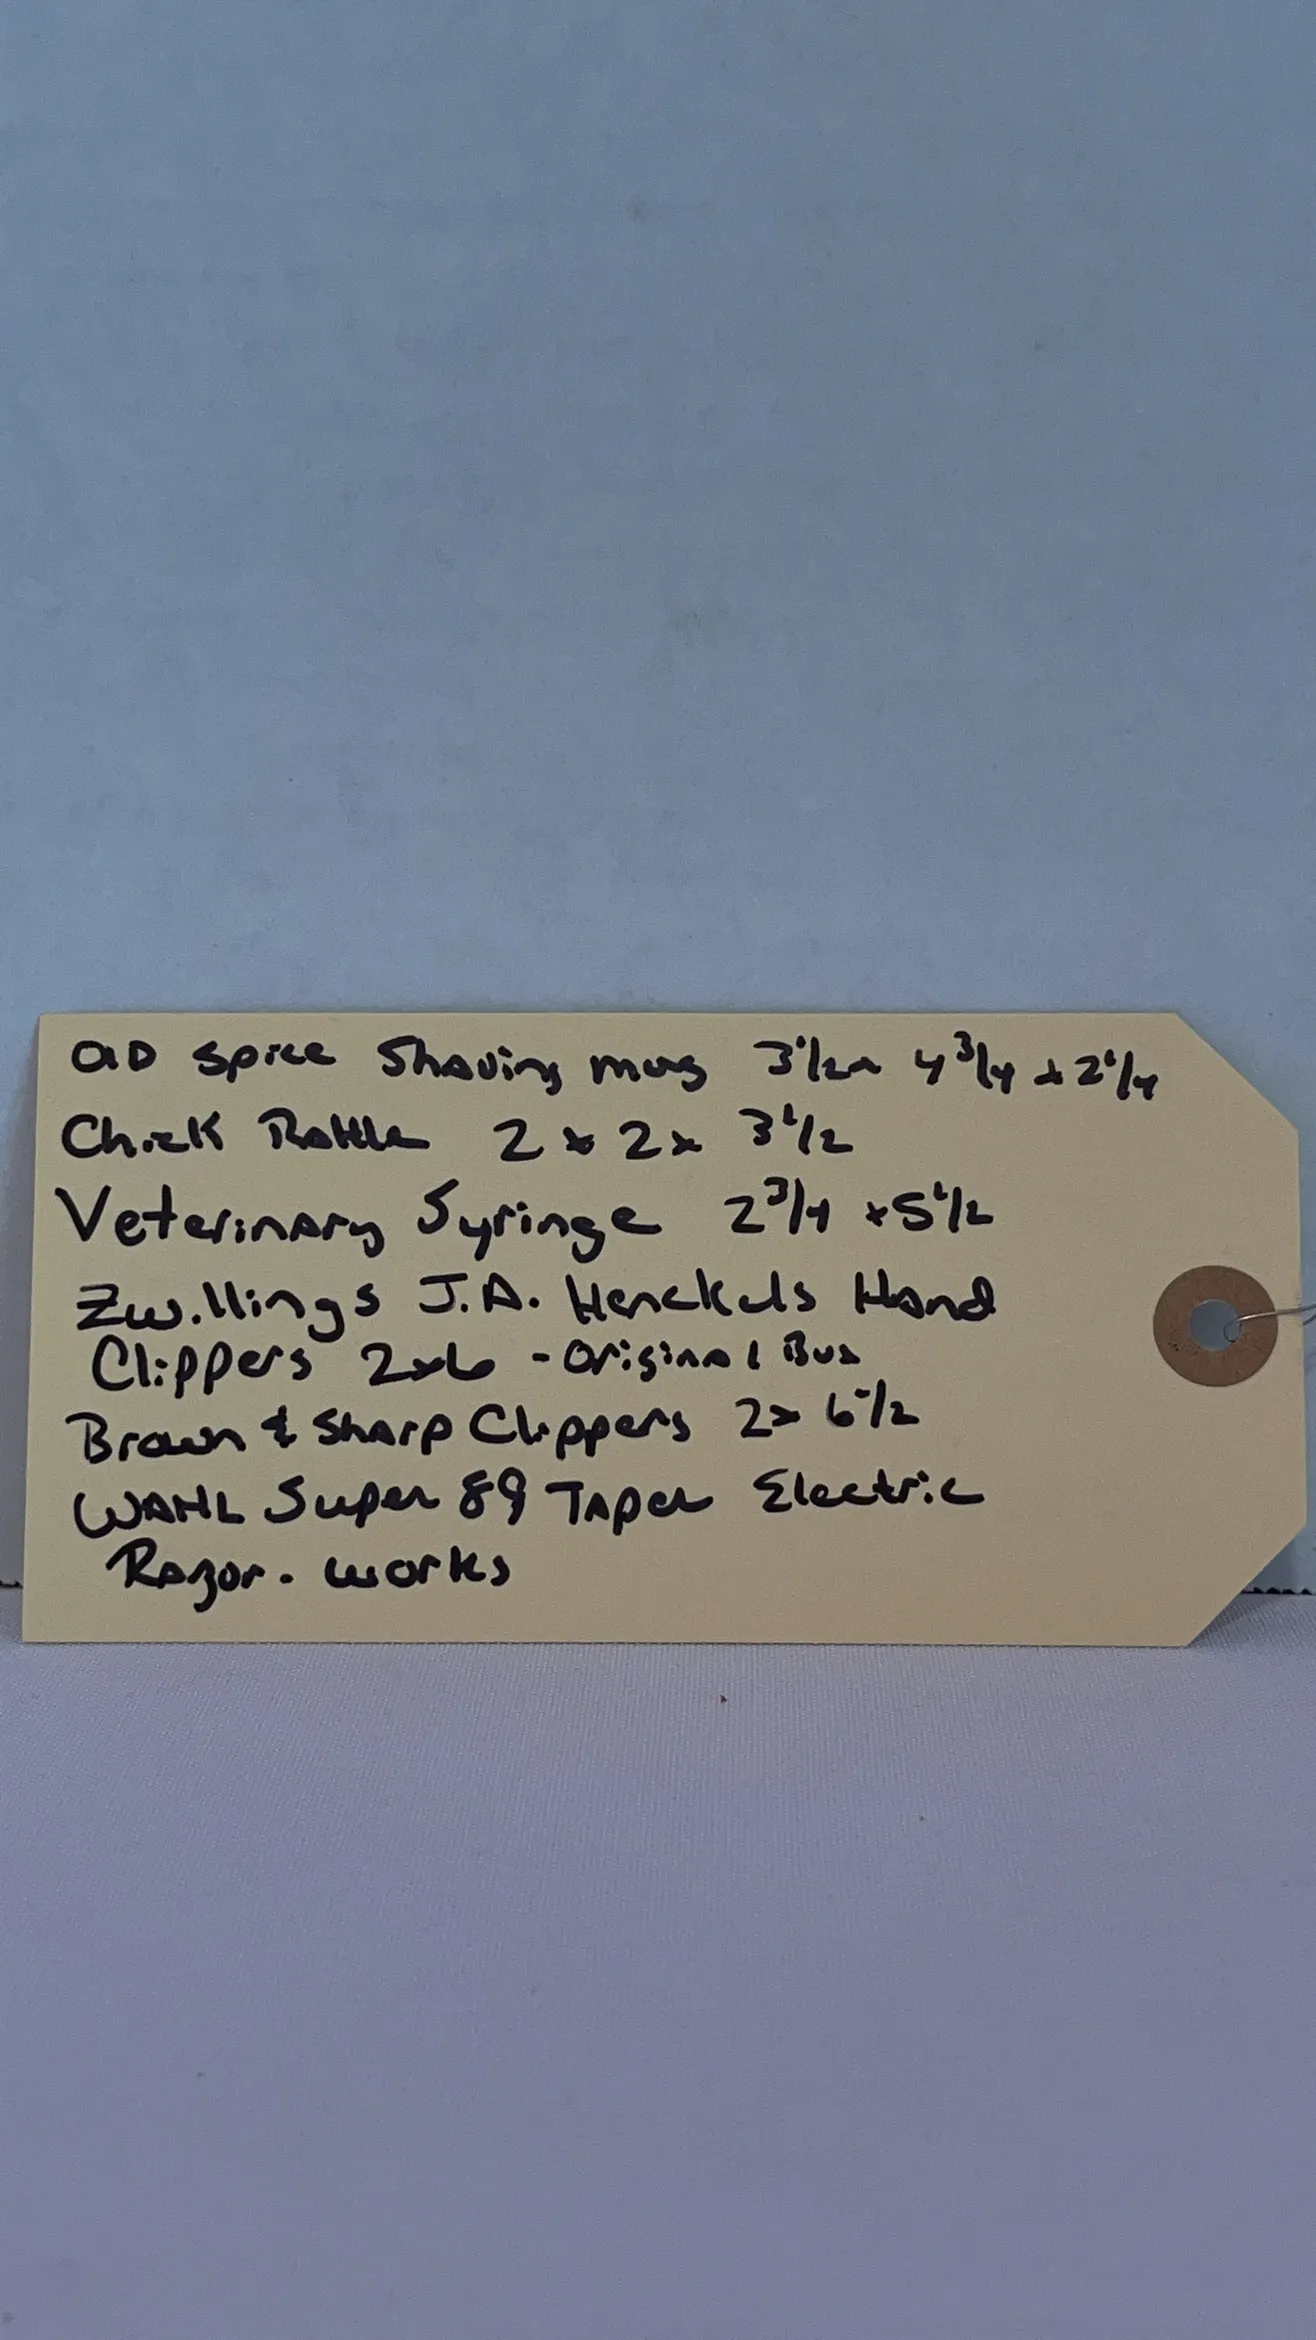 OLD Spice Shaving mug 3 1/2 x 4 3/4 x 2 1/4
Chick Rattle 2 x 2 x 3 1/2
Veterinary Syringe 2 3/4 x 5 1/2
Zwillings J.A. Henckels Hand
Clippers 2x6 - Original Box
Brown & Sharp Clippers 2x 6 1/2
WAHL Super 89 Taper Electric
Razor. works